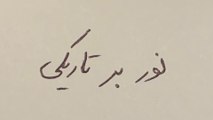 نور بر تاریکی